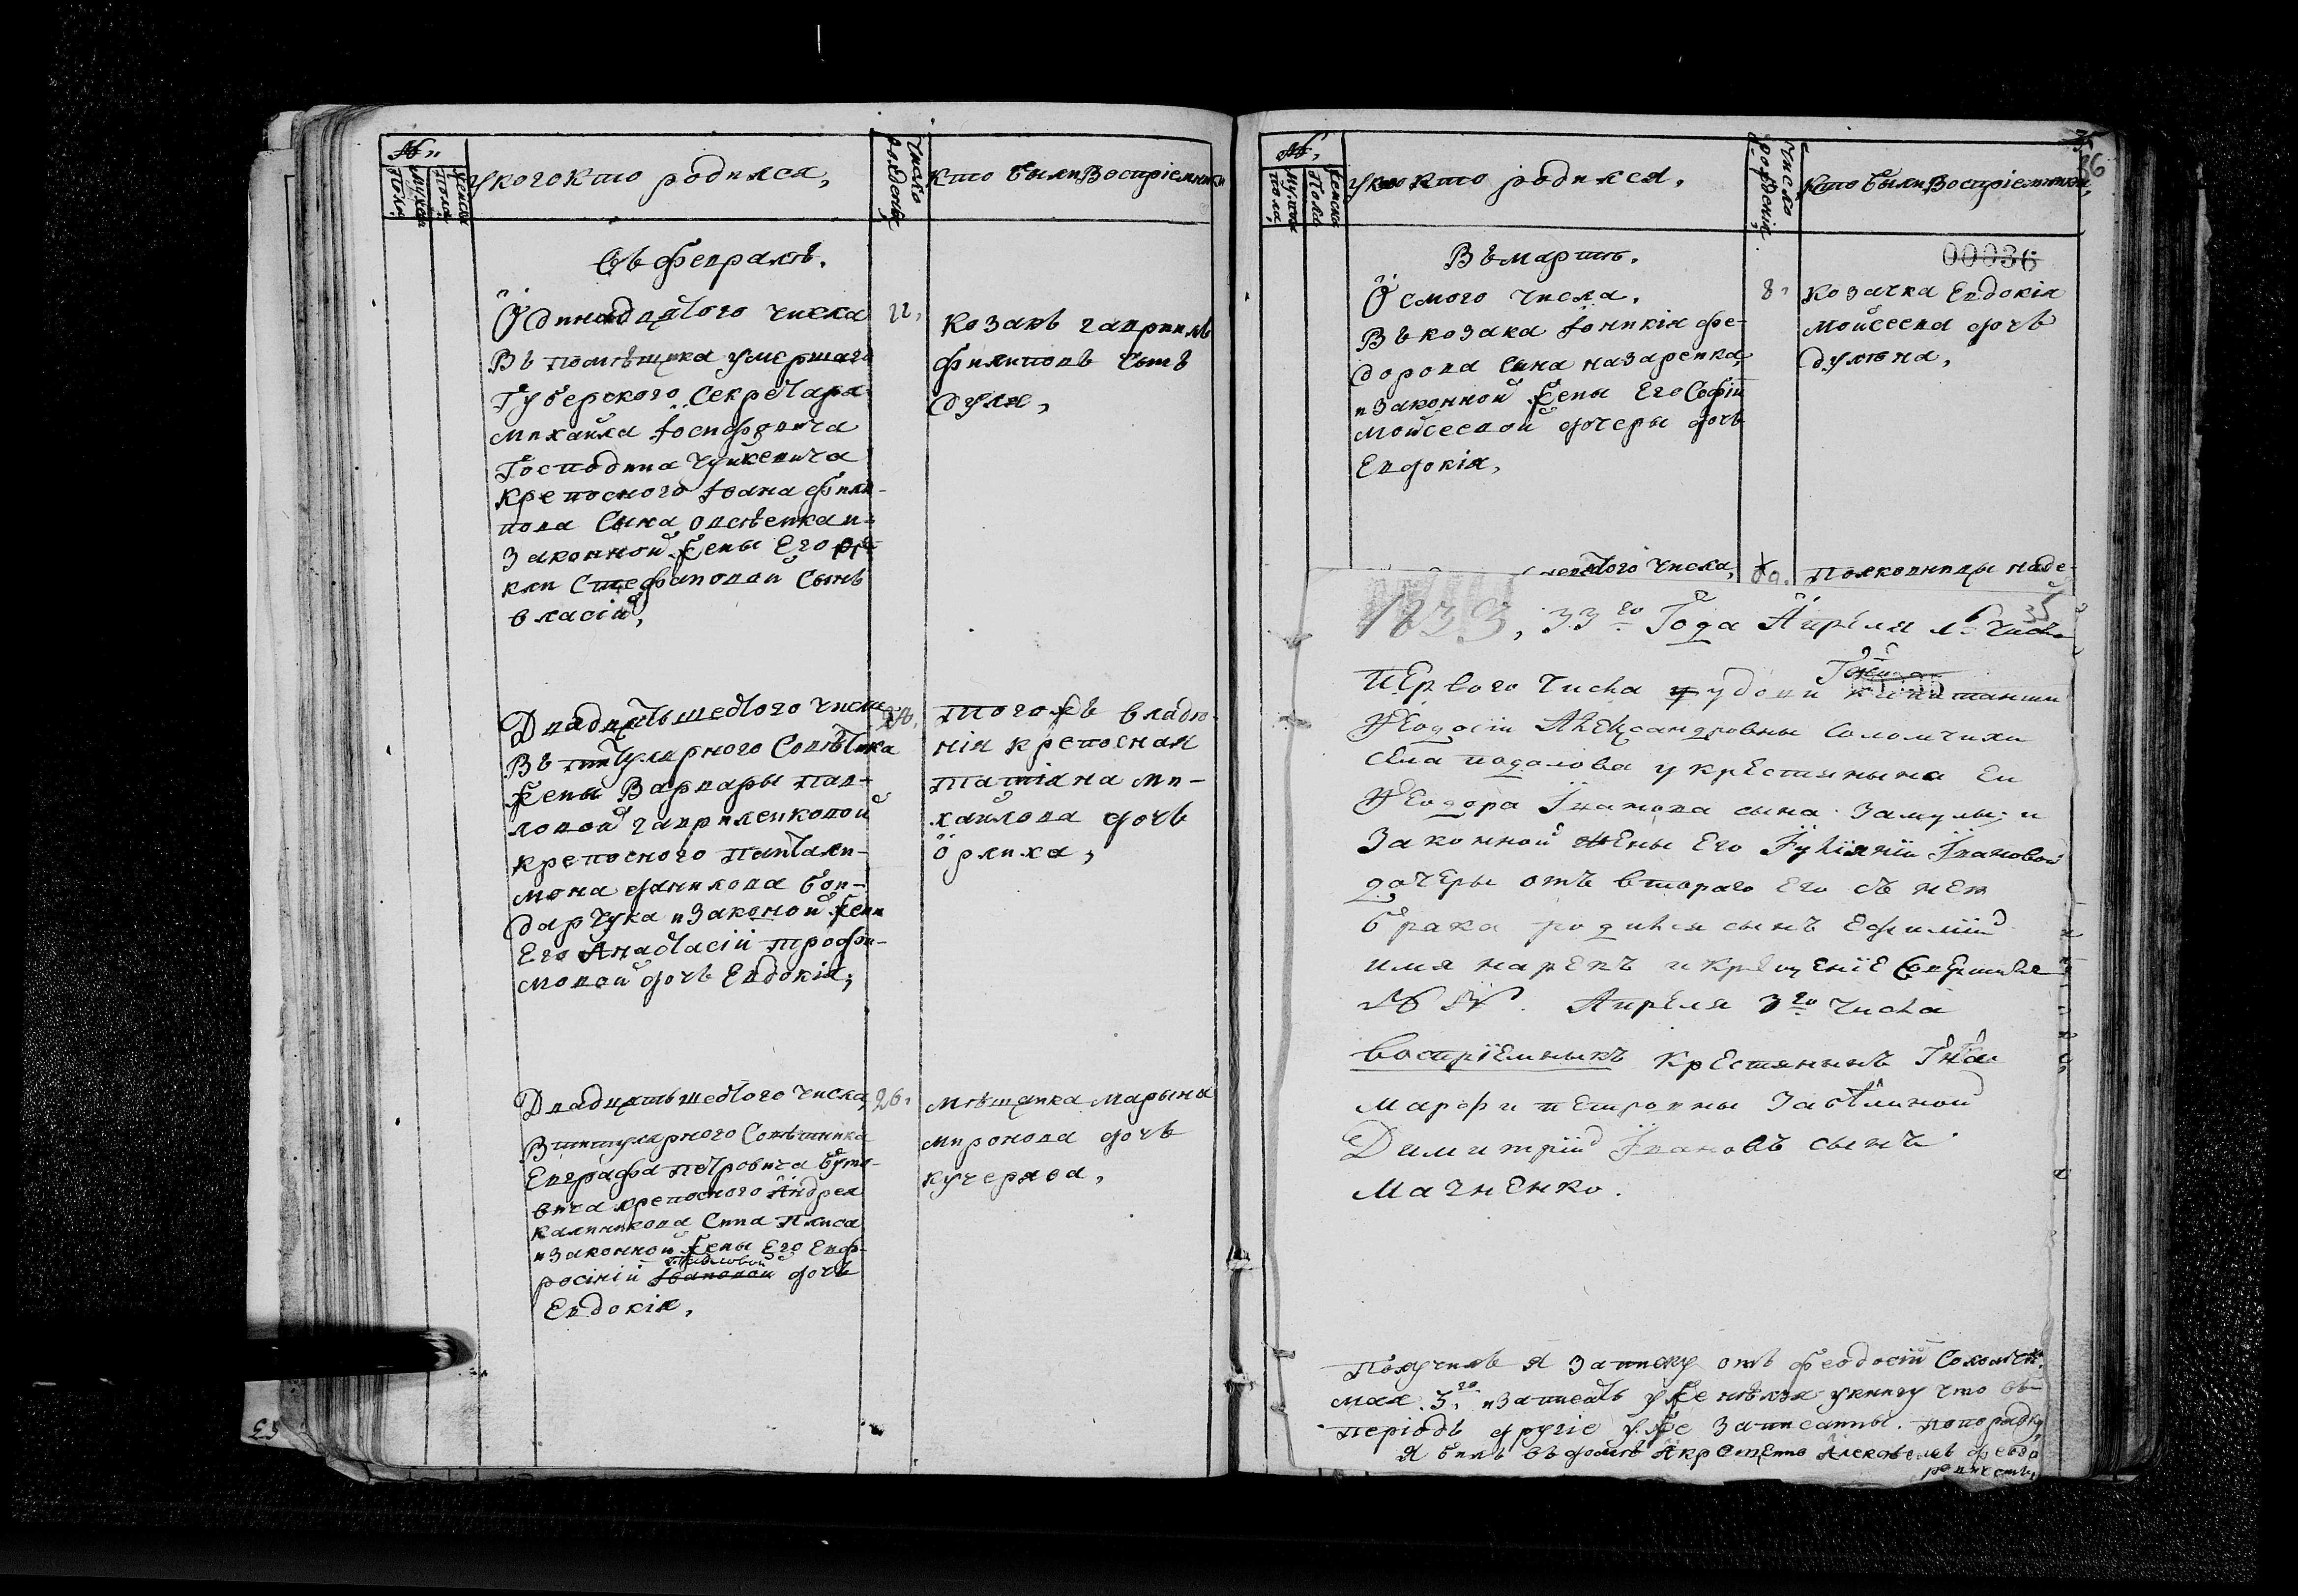 №
Мужеска Пола
Женска Пола
у кого кто родился,
Число рождения
кто были Восприемники
Въ феврале.
Одинадцятого числа
11,
Въ помѣщика умершаго
Губерского Секретара
михаила Иосифовича
Господина
крепосного Іоана фили-
пова Сына овсѣенка и
законной жены Его
кли Стефановой Сынъ
власій,
козакъ гавриилъ
филиповъ Сынъ
дуля,
Двадцять шестого числа
26,
Въ титулярного Совѣтника
жены Варвары пав-
ловой гавриленковой
крепосного пантали-
мона данилова бон-
дарчука и законой жени
Его Анастасіи трофи-
мовой дочь Евдокія,
тогожъ владѣ-
нія крепосная
татіана ми-
хайлова дочь
орлиха,
Двадцять шестого числа,
26,
В титулярного Совѣтника
Евграфа петровича
вича крепосного Андрея
калиникова Сина
и законной жены Его Евф-
росіній Іоановой дочь
Евдокія,
мѣщанка марына
миронова дочь
кучерява,
№
Мужеска пола
Женска Пола
у кого кто родился.
Число рождения
Кто были Восприемники,
36
00036
Въ марте.
Осмого числа.
8,
Въ козака Іоникія фе-
дорова сына назаренка,
и законной жены Его Софіи
мойсеевой дочеры дочь
Евдокія,
козачка Евдокія
мойсеева дочь
дулѣна,
числа,
полковницы наде-
1833, 33го Года Апреля 1 числа
35
Первого числа у удови капитанши
Феодосіи Александровны Соломчихи
села подолова у крестянына Еи
Феодора Іванова сына Замулы и
Законной жены Его Іуліянии Івановой
дочеры отъ второго Его съ нею
брака родился сынъ Ефимій
имя нарекъ и крещение Совершилъ
Апреля 3го числа
Восприемныкъ крестянынъ Гжи
Марфи петровны
Димитрій Івановъ сынъ
Маченко.
Получилъ я записку отъ феодосіи Соломчи.
мая 3го и записать уже нелзя у книгу что въ
періодъ другіе уже записанны. по порадку
я билъ въ домѣ